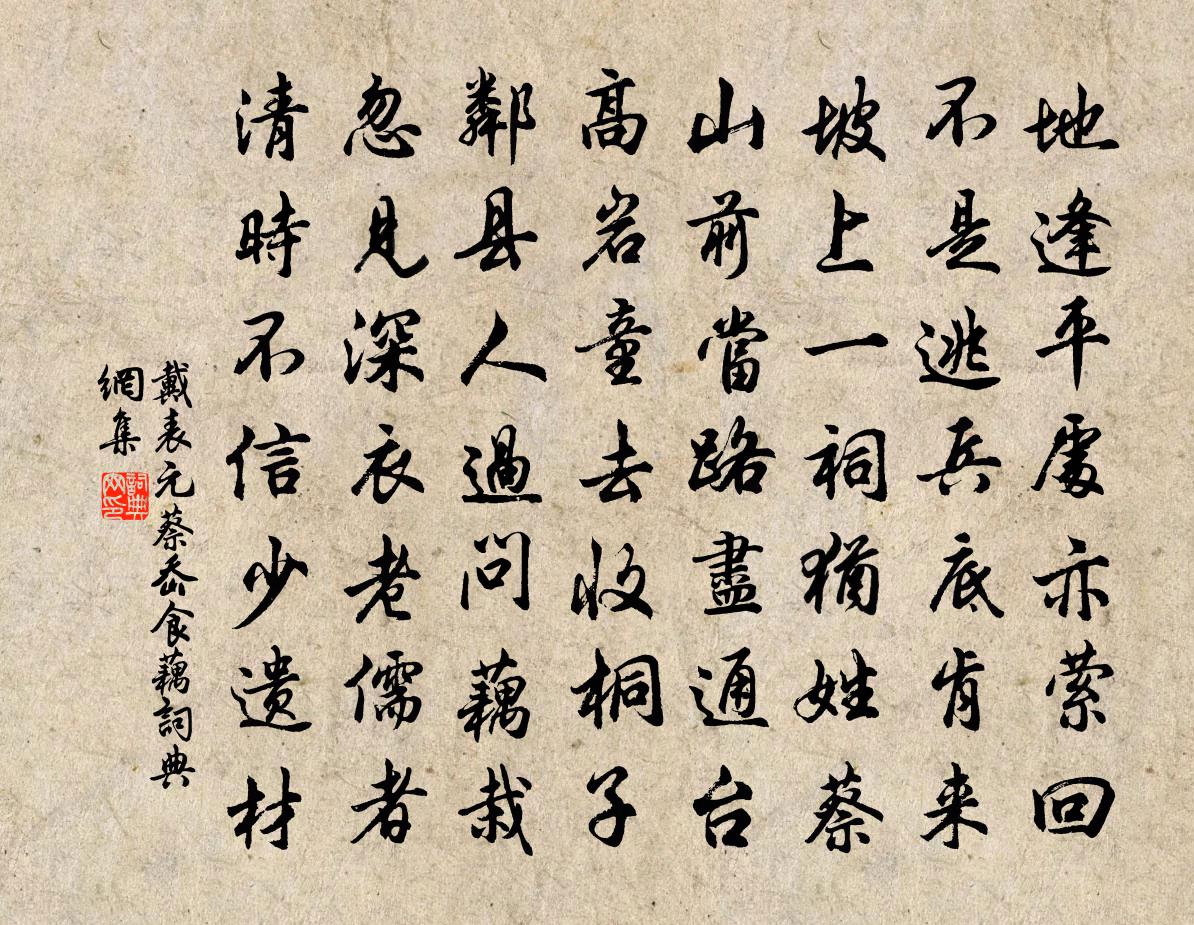 地逢平處亦萦回
不是逃兵底肯来
坡上一祠猶姓蔡
山前當路盡通台
高岩童去收桐子
鄰县人過问藕栽
忽见深衣老儒者
清時不信少遗材
戴表元蔡岙食藕詞典
網集
詞典